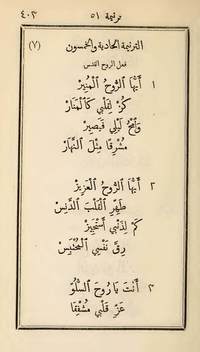 ترنيمة ٥١ ٤٠٣
الترنيمة الحادية والخمسون (٧)
فعل الروح القدس
١ أَيُّهَا الرُّوحُ الْمُنِيرْ
كُنْ لِقَلْبِي كَالْمَنَارْ
وَامْحُ لَيْلِي فَيَصِيرْ
مُشْرِقًا مِثْلَ النَّهَارْ
٢ أَيُّهَا الرُّوحُ الْعَزِيزْ
طَهِّرِ الْقَلْبَ الدَّنِسْ
كَمْ لِذَنْبِي أَسْتَجِيزْ
رِقَّ نَفْسِي الْمُحْتَبِسْ
٣ أَنْتَ يَا رُوحَ السُّلُوّ
عَزِّ قَلْبِي مُشْفِقَا